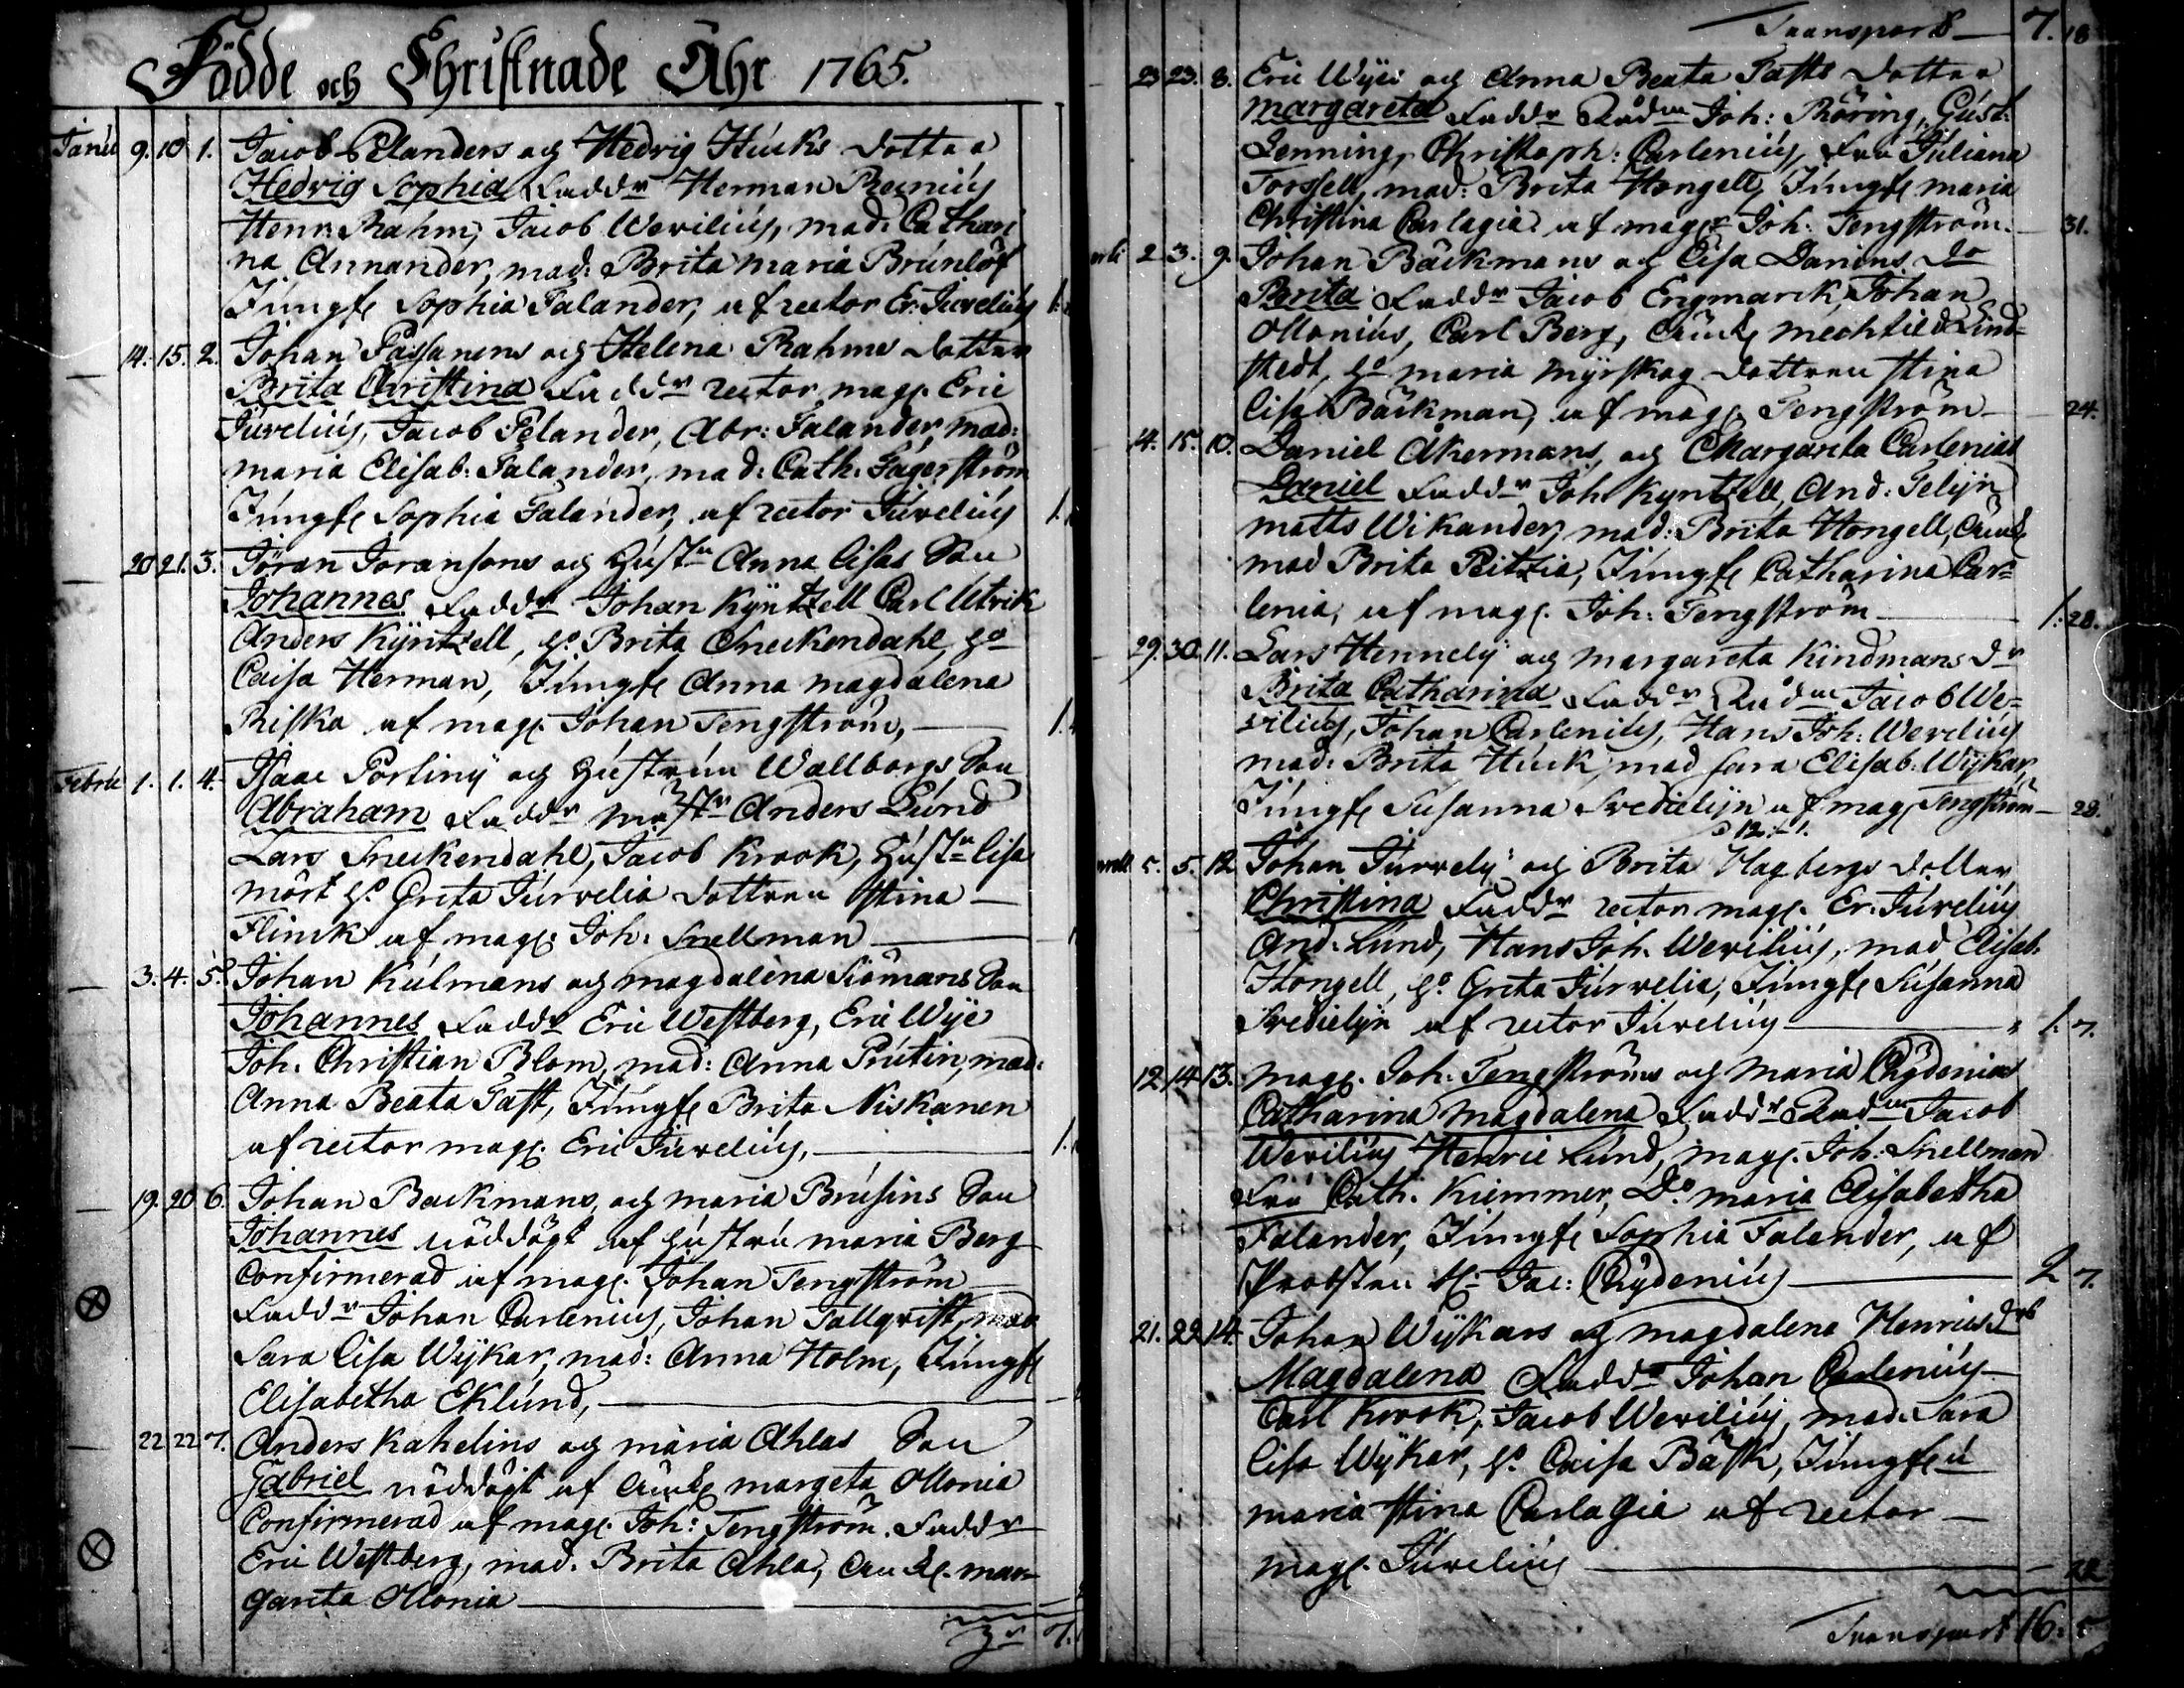 Födde och Christnade Åhr 1765.
Janu 9. 10 1. Jacob Pelanders och Hedvig Hücks dotter
Hedvig Sophia Faddr Herman
Henr. Rahm, Jacob Weril​ius, mad: Cathari
na Annander, mad: Brita Maria Brunlöf
Jungfr Sophia Falander, af rector Er: Juvelius
14. 15. 2. Johan Passanens och Helena Rahms dotter
Brita Christina Faddr rector mag. Eric
Juvelius, Jacob Pelander, Abr: Falander, mad:
Maria Elisab: Falander, mad: Cath: Fagerström
Jungfr Sophia Falander, af rector Juvelius
20 21. 3. Jöran Joransons och Hustr Anna Lisas Son
Johannes Faddr Johan Kyntzell Carl Utrik
Anders Kyntzell, H. Brita Sneckendahl, Ho
Caisa Herman, Jungfr Anna Magdalena
Riska af mag. Johan Tengström,
Febru 1. 1. 4. Isaac Portiny och Hustrun Wallborgs Son
Abraham Faddr Mästr Anders Lund
Lars Sneckendahl, Jacob Krook, Hustr Lisa
Mört H. Greta Jurvelia dottren Stina
Flinck af mag. Joh: Snellman
3. 4. 5. Johan Kulmans och Magdalena Siömans Son
Johannes Faddr Eric Westberg, Eric Wije
Joh. Christian Blom, mad: Anna Prutin, mad:
Anna Beata Gast, Jungfr Brita Niskanen
af rector mag. Eric Juvelius,
19. 20 6. Johan Backmans, och Maria Brusins Son
Johannes nöddögt af Hustru Maria Berg
Confirmerad af mag. Johan Tengström
Faddr Johan Carlenius, Johan Tallqvist, mad
Sara Lisa Wijkar, mad: Anna Holm, Jungfr
Elisabetha Eklund,
22 22 7. Anders Kahelins och Maria Ahlas Son
Gabriel nöddögt af Änk Margeta Ollonia
Confirmerad af mag. Joh: Tengström. Faddr
Eric Westberg, mad. Brita Ahla, Änk. Mar
gareta Ollonia
7.
Transport 7. 18
23 23. 8. Eric Wijes och Anna Beata Gasts dotter
Margareta Faddr Rådm Joh: Röring, Gust:
Lenning, Christoph: Carlenius, Fru Juliana
Forssell, mad: Brita Hongell, Jungfr Maria
Christina Carlagia af magr Joh. Tengström. 31.
2 3. 9. Johan Bäckmans och Lisa Dariens do
Brita Faddr Jacob Engmarck, Johan
Ollonius, Carl Berg, Änk Mechtild Lind=
stedt, Ho Maria Myrskog dottren Stina
Lisa Bäckman, af mag. Tengström 24.
14. 15. 10. Daniel Åkermans, och Margareta Carlenias
Daniel Faddr Joh Kyntzell, And: Gelijn
Matts Wikander, mad: Brita Hongell, Änk
mad Brita Peitzia, Jungfr Catharina Car=
lenia, af mag. Joh: Tengström 1. 28.
29. 30. 11. Lars Hennely och Margareta Kindmans dr
Brita Catharina Faddr Rådm Jacob We=
rilius, Johan Carlenius, Hans Joh: Werelius
mad: Brita Huck, mad Sara Elisab: Wijkar,
Jungfr Susanna Svedielijn af mag Tengström 28.
5. 5. 12 Johan Jurvely och Brita Hagbergs dotter
Christina Faddr rector mag. Er. Juvelius
And: Lund, Hans Joh. Werilius, mad Elisab.
Hongell, H. Greta Jurvelia, Jungfr Susanna
Svedielijn af rector Juvelius 1. 7.
12. 14 13. Mag. Joh: Tengströms och Maria Chydenias
Catharina Magdalena Faddr Rådm Jacob
Werilius Henric Lund, mag. Joh: Snellman
Fru Cath. Kiemmer, Do Maria Elisabetha
Falander, Jungfr Sophia Falander, af
Probsten H: Jac: Chydenius 2 7.
21. 22. 14. Johan Wijkars och Magdalena Henrics dr
Magdalena Faddr Johan Carlenius
Carl Krook, Jacob Werilius, mad. Sara
Lisa Wijkar, H. Caisa Bäsk, Jungfru
Maria Stina Carlagia af rector
mag. Juvelius 22
Transport 16. 5